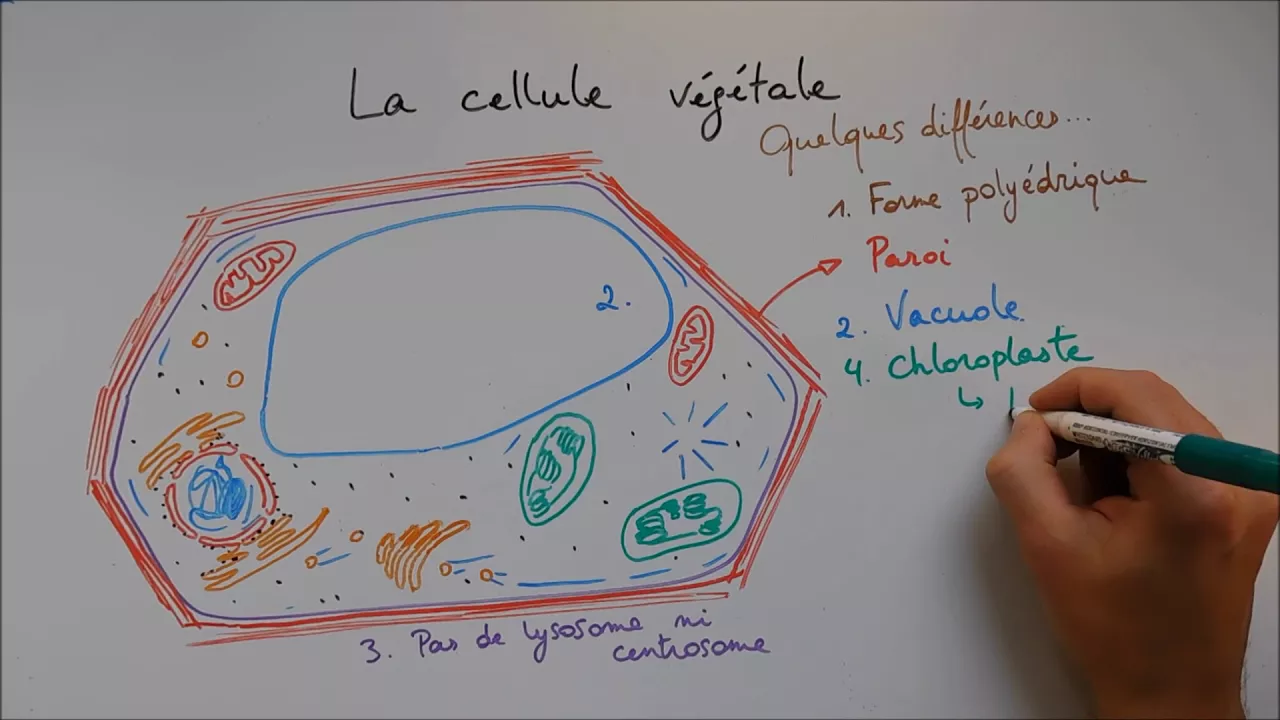 La cellule végétale
Quelques différences...
1. Forme polyédrique
Paroi
2. Vacuole
4. Chloroplaste
2.
3. Pas de lysosome ni
centrosome